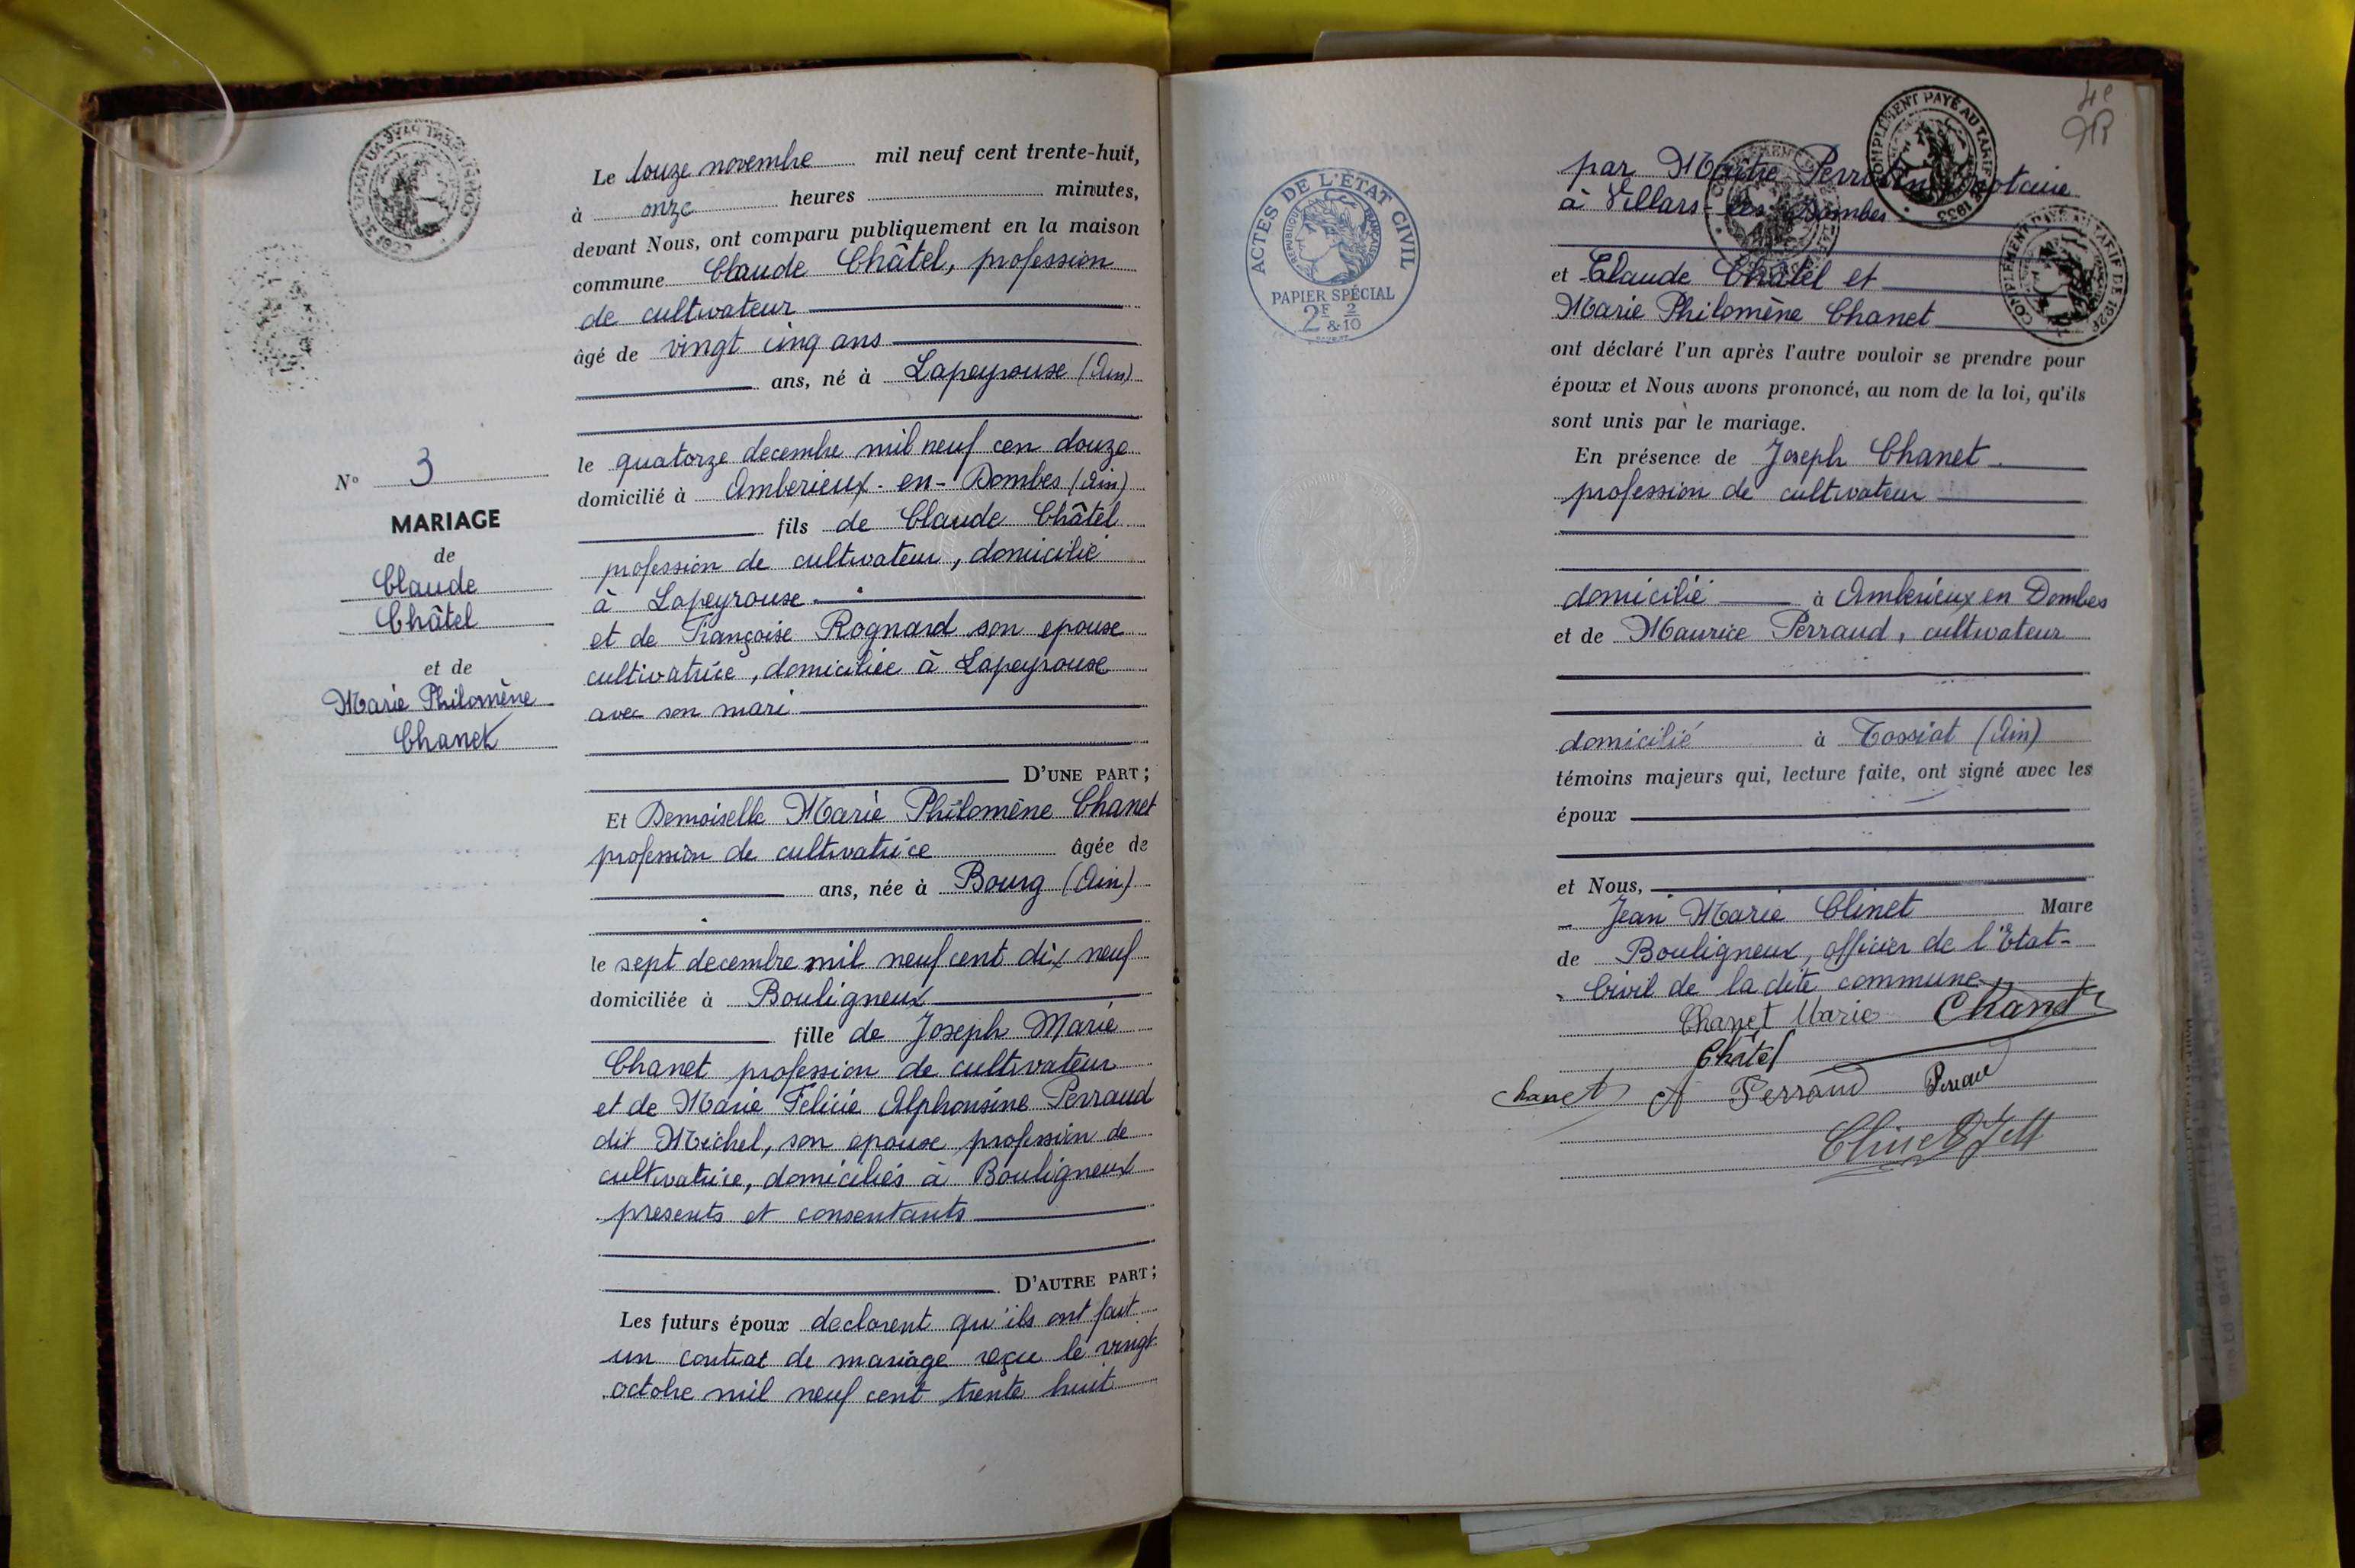 COMPLÉMENT PAYÉ AU TARIF DE 1933
N° 3
MARIAGE
de
Claude
Châtel
et de
Marie Philomène
Chanet
Le douze novembre mil neuf cent trente-huit,
à onze heures minutes,
devant Nous, ont comparu publiquement en la maison
commune Claude Châtel, profession
de cultivateur
âgé de vingt cinq ans
ans, né à Lapeyrouse (Ain)
le quatorze decembre mil neuf cen douze
domicilié à Amberieux-en-Dombes (Ain)
fils de Claude Châtel
profession de cultivateur, domicilié
à Lapeyrouse.
et de Françoise Rognard son epouse
cultivatrice, domiciliée à Lapeyrouse
avec son mari
D'UNE PART;
Et Demoiselle Marie Philomène Chanet
profession de cultivatrice âgée de
ans, née à Bourg (Ain)
le sept decembre mil neuf cent dix neuf
domiciliée à Bouligneux
fille de Joseph Marie
Chanet profession de cultivateur
et de Marie Félicie Alphonsine Perraud
dit Michel, son epouse profession de
cultivatrice, domiciliés à Bouligneux
presents et consentants
D'AUTRE PART;
Les futurs époux declarent qu'ils ont fait
un contrat de mariage reçu le vingt
octobre mil neuf cent trente huit
ACTES DE L'ÉTAT CIVIL
RÉPUBLIQUE FRANÇAISE
PAPIER SPÉCIAL
2F & 2/10
COMPLÉMENT PAYÉ AU TARIF DE 1933
par Maître notaire
à Villars-les-Dombes
et Claude Châtel et
Marie Philomène Chanet
ont déclaré l'un après l'autre vouloir se prendre pour
époux et Nous avons prononcé, au nom de la loi, qu'ils
sont unis par le mariage.
En présence de Joseph Chanet
profession de cultivateur
domicilié à Amberieux en Dombes
et de Maurice Perraud, cultivateur
domicilié à Tossiat (Ain)
témoins majeurs qui, lecture faite, ont signé avec les
époux
et Nous,
Jean Marie Clinet Maire
de Bouligneux, officier de l'Etat-
Civil de la dite commune.
Chanet Marie Chanet
Châtel
Chanet A Perraud Perraud
Clinet J M